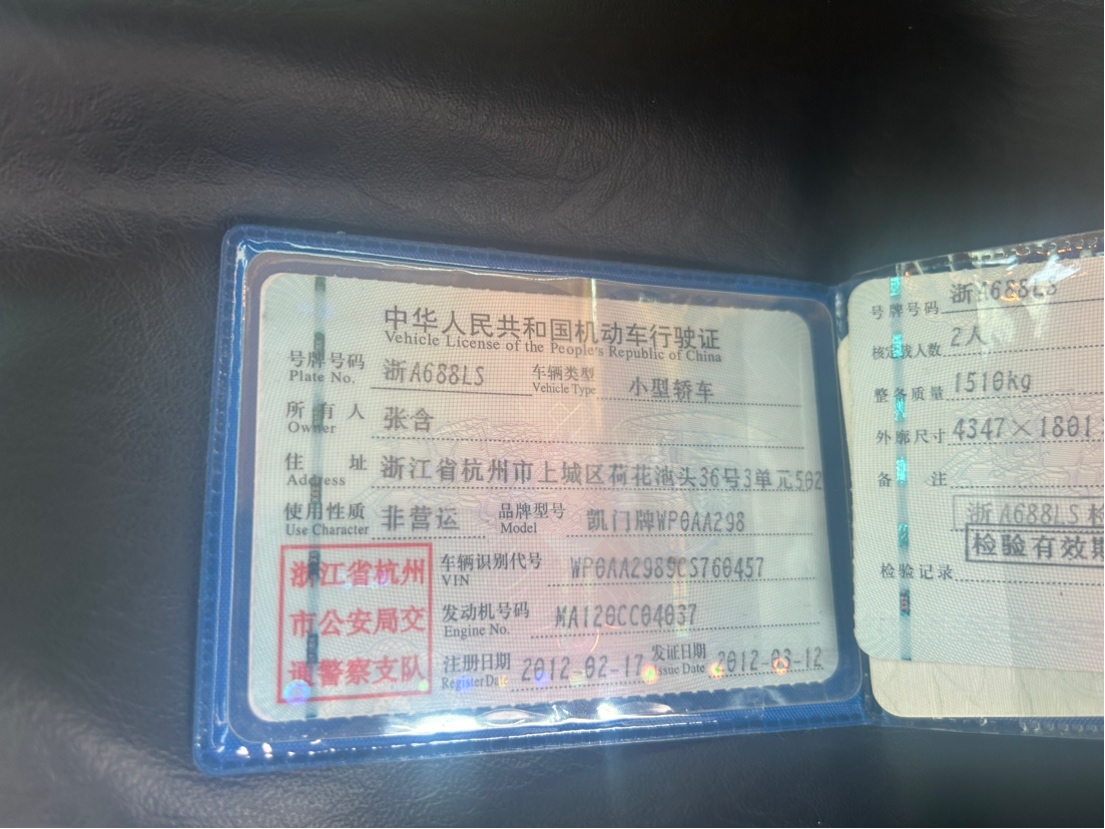 中华人民共和国机动车行驶证
Vehicle License of the People's Republic of China
号牌号码 浙A688LS 车辆类型 小型轿车
Plate No. Vehicle Type
所有人 张含
Owner
住址 浙江省杭州市上城区荷花池头36号3单元502
Address
使用性质 非营运 品牌型号 凯门牌WP0AA298
Use Character Model
浙江省杭州
市公安局交
通警察支队
车辆识别代号 WP0AA2989CS760457
VIN
发动机号码 MA120CC04037
Engine No.
注册日期 2012-02-17 发证日期 2012-03-12
Register Date Issue Date
号牌号码 浙A688LS
核定载人数 2人
整备质量 1510kg
外廓尺寸 4347×1801
备注
浙A688LS 检
检验有效期
检验记录